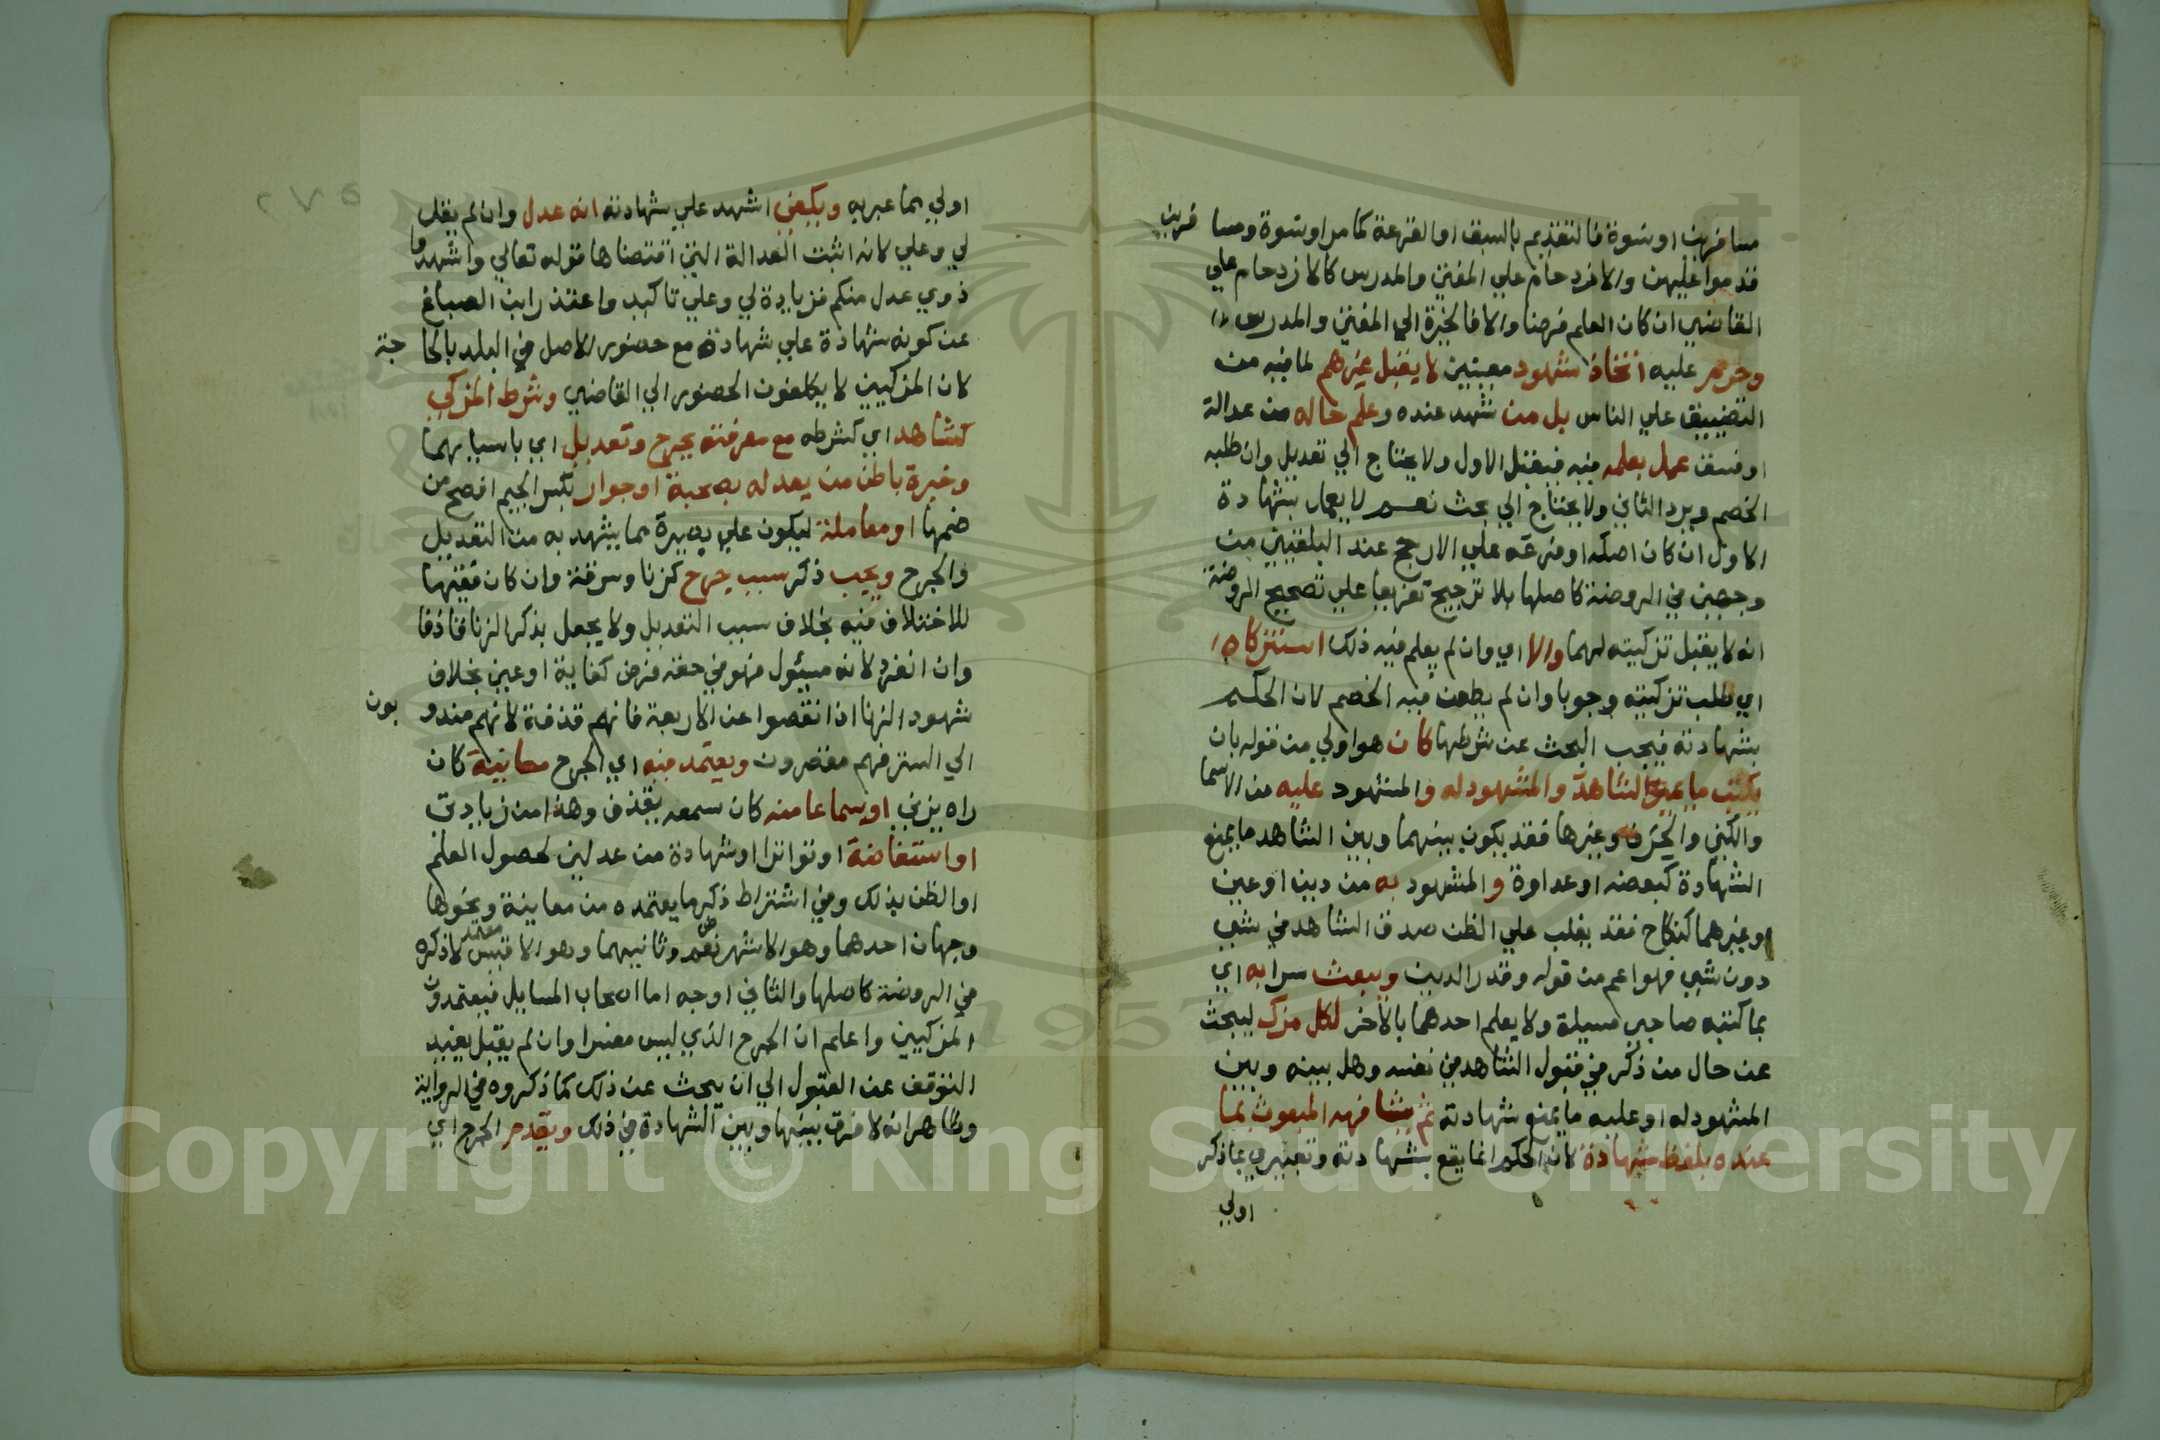 مسافرين او نسوة فالتقديم بالسبق او القرعة كما مر او نسوة ومسافرين
قدموا عليهن والازدحام علي المفتي والمدرس كالازدحام علي
القاضي ان كان العلم فرضا والا فالخيرة الي المفتي والمدرس
وحرم عليه اتخاذ شهود معينين لا يقبل غيرهم لما فيه من
التضييق علي الناس بل من شهد عنده وعلم حاله من عدالة
او فسق عمل بعلمه فيه فيقبل الاول ولا يحتاج الي تعديل وان طلبه
الخصم ويرد الثاني ولا يحتاج الي بحث نعم لا يعمل بشهادة
الاول ان كان اصله او فرعه علي الارجح عند البلقيني من
وجهين في الروضة كاصلها بلا ترجيح تفريعا علي تصحيح الروضة
انه لا يقبل تزكيته لهما والا اي وان لم يعلم فيه ذلك استزكاه
اي طلب تزكيته وجوبا وان لم يطعن فيه الخصم لان الحكم
بشهادته فيجب البحث عن شرطها كان هو اولي من قوله بان
يكتب ما يميز الشاهد والمشهود له والمشهود عليه من الاسما
والكني والحرف وغيرها فقد يكون بينهما وبين الشاهد ما يمنع
الشهادة كبعضه او عداوة والمشهود به من دين او عين
وغيرهما كنكاح فقد يغلب علي الظن صدق الشاهد في شي
دون شي فهو اعم من قوله وقدر الدين ويبعث سرا به اي
بما كتبه صاحبي مسيلة ولا يعلم احدهما بالاخر لكل مزك ليبحث
عن حال من ذكر في قبول الشاهد في نفسه وهل بينه وبين
المشهود له او عليه ما يمنع شهادته ثم يشافهه المبعوث بما
عنده بلفظ شهادة لان الحكم انما يقع بشهادته وتعبيري بما ذكر
اولي
اولي مما عبر به ويكفي اشهد علي شهادته انه عدل وان لم يقل
لي وعلي لانه اثبت العدالة التي اقتضاها قوله تعالي واشهدوا
ذوي عدل منكم فزيادة لي وعلي تاكيد واعتذر ابن الصباغ
عن كونه شهادة علي شهادة مع حضور الاصل في البلد بالحاجة
لان المزكيين لا يكلفون الحضور الي القاضي وشرط المزكي
كشاهد اي كشرطه مع معرفته بجرح وتعديل اي باسبابهما
وخبرة باطن من يعدله بصحبة او جوار بكسر الجيم افصح من
ضمها او معاملة ليكون علي بصيرة مما يشهد به من التعديل
والجرح ويجب ذكر سبب جرح كزنا وسرقة وان كان فقيها
للاختلاف فيه بخلاف سبب التعديل ولا يجعل بذكر الزنا قاذفا
وان انفرد لانه مسيول فهو في حقه فرض كفاية او عين بخلاف
شهود الزنا اذا نقصوا عن الاربعة فانهم قذفة لانهم مندوبون
الي الستر فهم مقصرون ويعتمد فيه اي الجرح معاينة كان
راه يزني او سماعا منه كان سمعه يقذف وهذا من زيادتي
او استفاضة او تواترا او شهادة من عدلين لحصول العلم
او الظن بذلك وفي اشتراط ذكر ما يعتمده من معاينة ونحوها
وجهان احدهما وهو الاشهر نعم وثانيهما وهو الاقيس لا ذكره
في الروضة كاصلها والثاني اوجه اما اصحاب المسايل فيعتمدون
المزكيين واعلم ان الجرح الذي ليس مفسرا وان لم يقبل يفيد
التوقف عن القبول الي ان يبحث عن ذلك كما ذكروه في الرواية
وظاهر انه لا فرق بينها وبين الشهادة في ذلك ويقدم الجرح اي